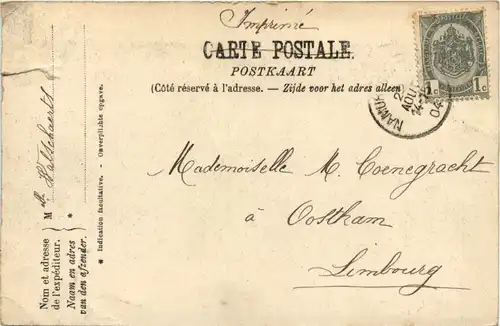 Imprimé
CARTE POSTALE.
POSTKAART
(Côté réservé à l'adresse. — Zijde voor het adres alleen)
1c 1c
NAMUR
2
AOU
14-15
04
Mademoiselle M. Coenegracht
à
Oostham
Limbourg
Nom et adresse
de l'expéditeur.
Naam en adres
van den afzender.
Mlle Halschaerts
*
* Indication facultative. - Onverplichte opgave.